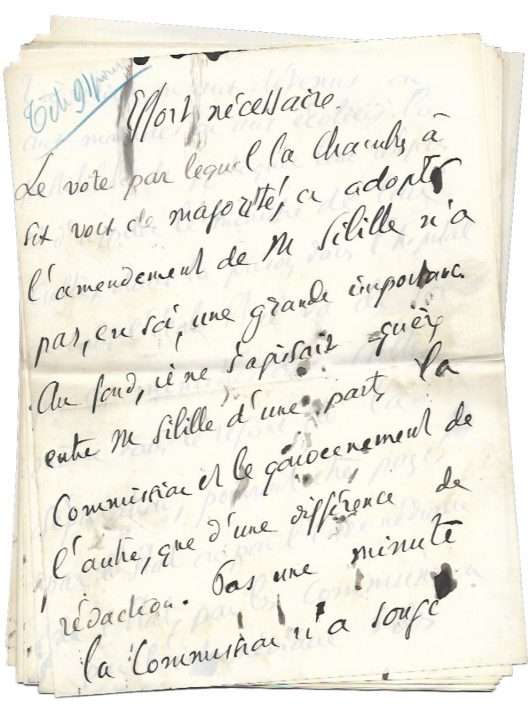 Effort nécessaire.
Le vote par lequel la Chambre, à
six voix de majorité, a adopté
l'amendement de M Sibille n'a
pas, en soi, une grande importance.
Au fond, il ne s'agissait guère
entre M Sibille d'une part, la
Commission et le gouvernement de
l'autre, que d'une différence de
rédaction. Pas une minute
la Commission n'a songé